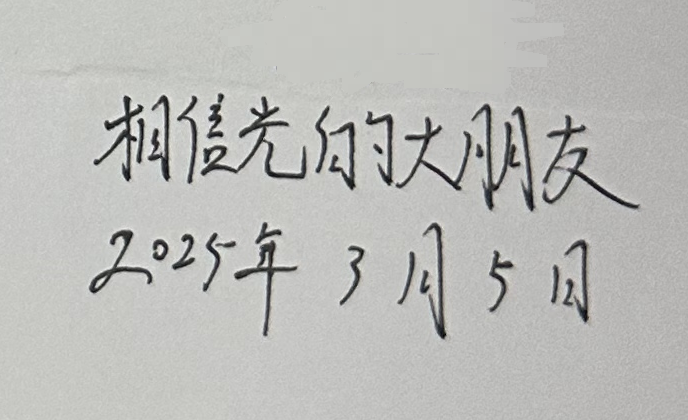 相信光的大朋友
2025年3月5日